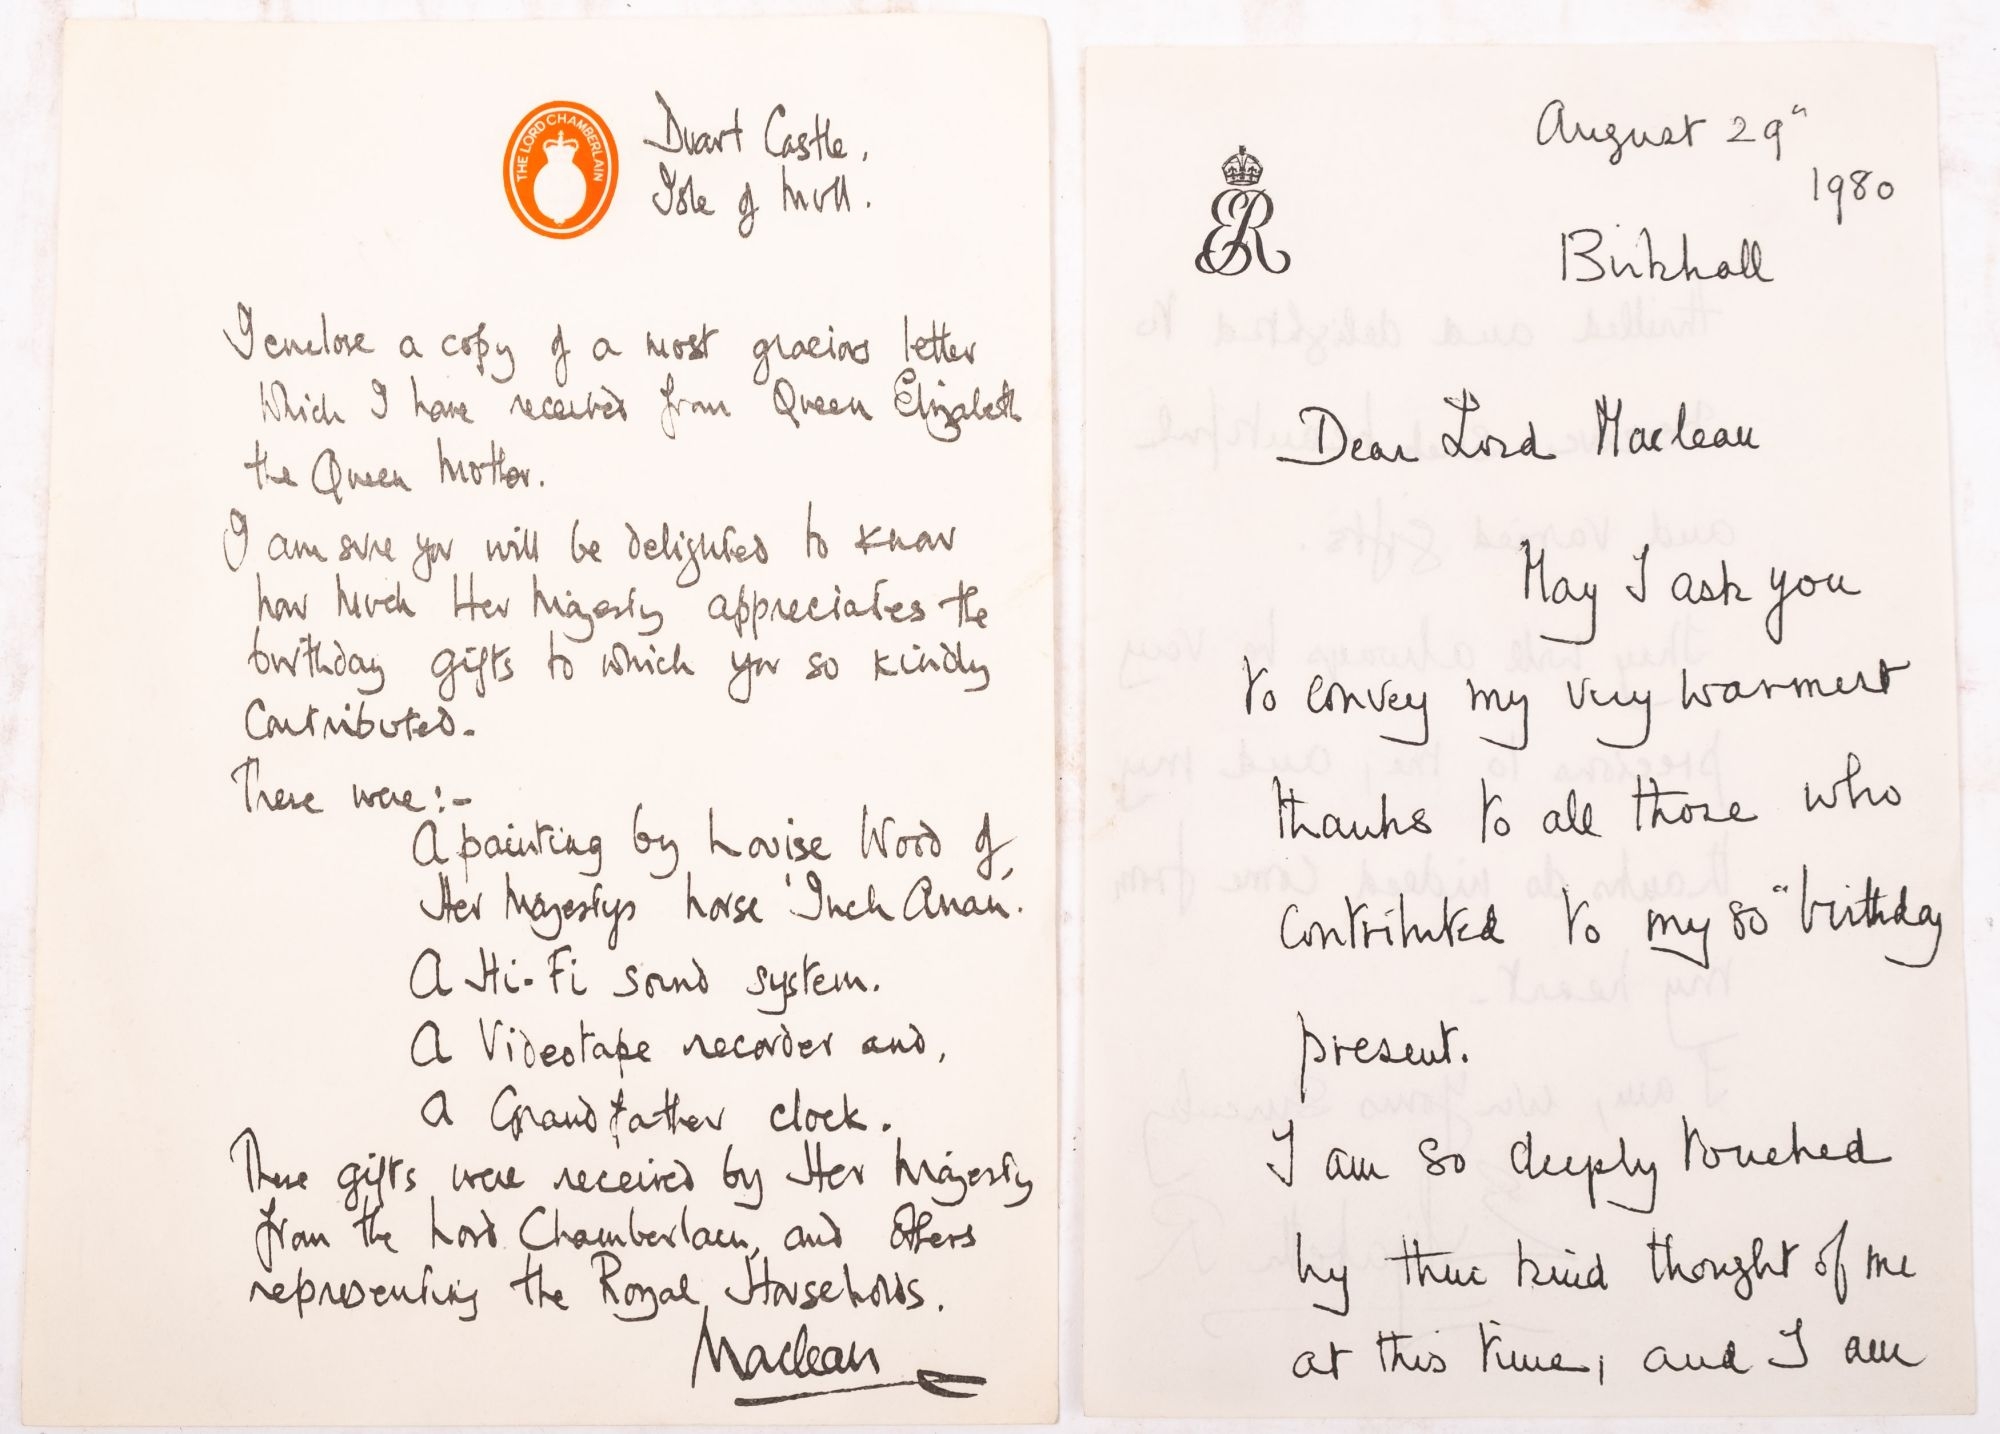 THE LORD CHAMBERLAIN
Duart Castle,
Isle of Mull.
I enclose a copy of a most gracious letter
which I have received from Queen Elizabeth
the Queen Mother.
I am sure you will be delighted to know
how much Her Majesty appreciates the
birthday gifts to which you so kindly
contributed.
These were:-
A painting by Louise Wood of,
Her Majestys horse 'Inch Arran'.
A Hi-Fi sound system.
A Videotape recorder and,
A Grandfather clock.
These gifts were received by Her Majesty
from the Lord Chamberlain, and others
representing the Royal Households.
Maclean
August 29"
1980
ER
Birkhall
Dear Lord Maclean
May I ask you
to convey my very warmest
thanks to all those who
contributed to my 80" birthday
present.
I am so deeply touched
by their kind thought of me
at this time, and I am
thrilled and delighted to
beautiful
and varied gifts.
They will always be very
precious to me, and my
thanks do indeed come from
my heart.
I am, Yours Sincerely
Elizabeth R